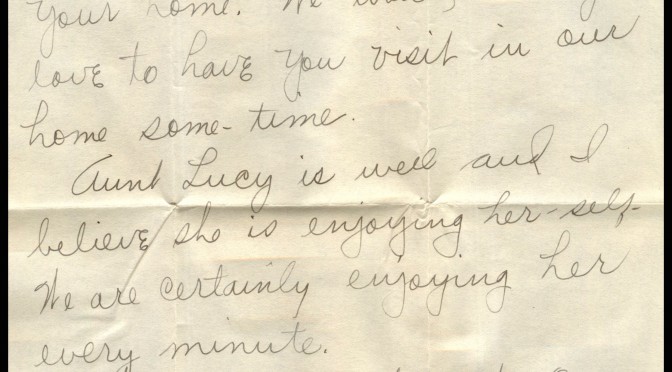 your home. We
love to have you visit in our
home some-time.
Aunt Lucy is well and I
believe she is enjoying her-self-
We are certainly enjoying her
every minute.